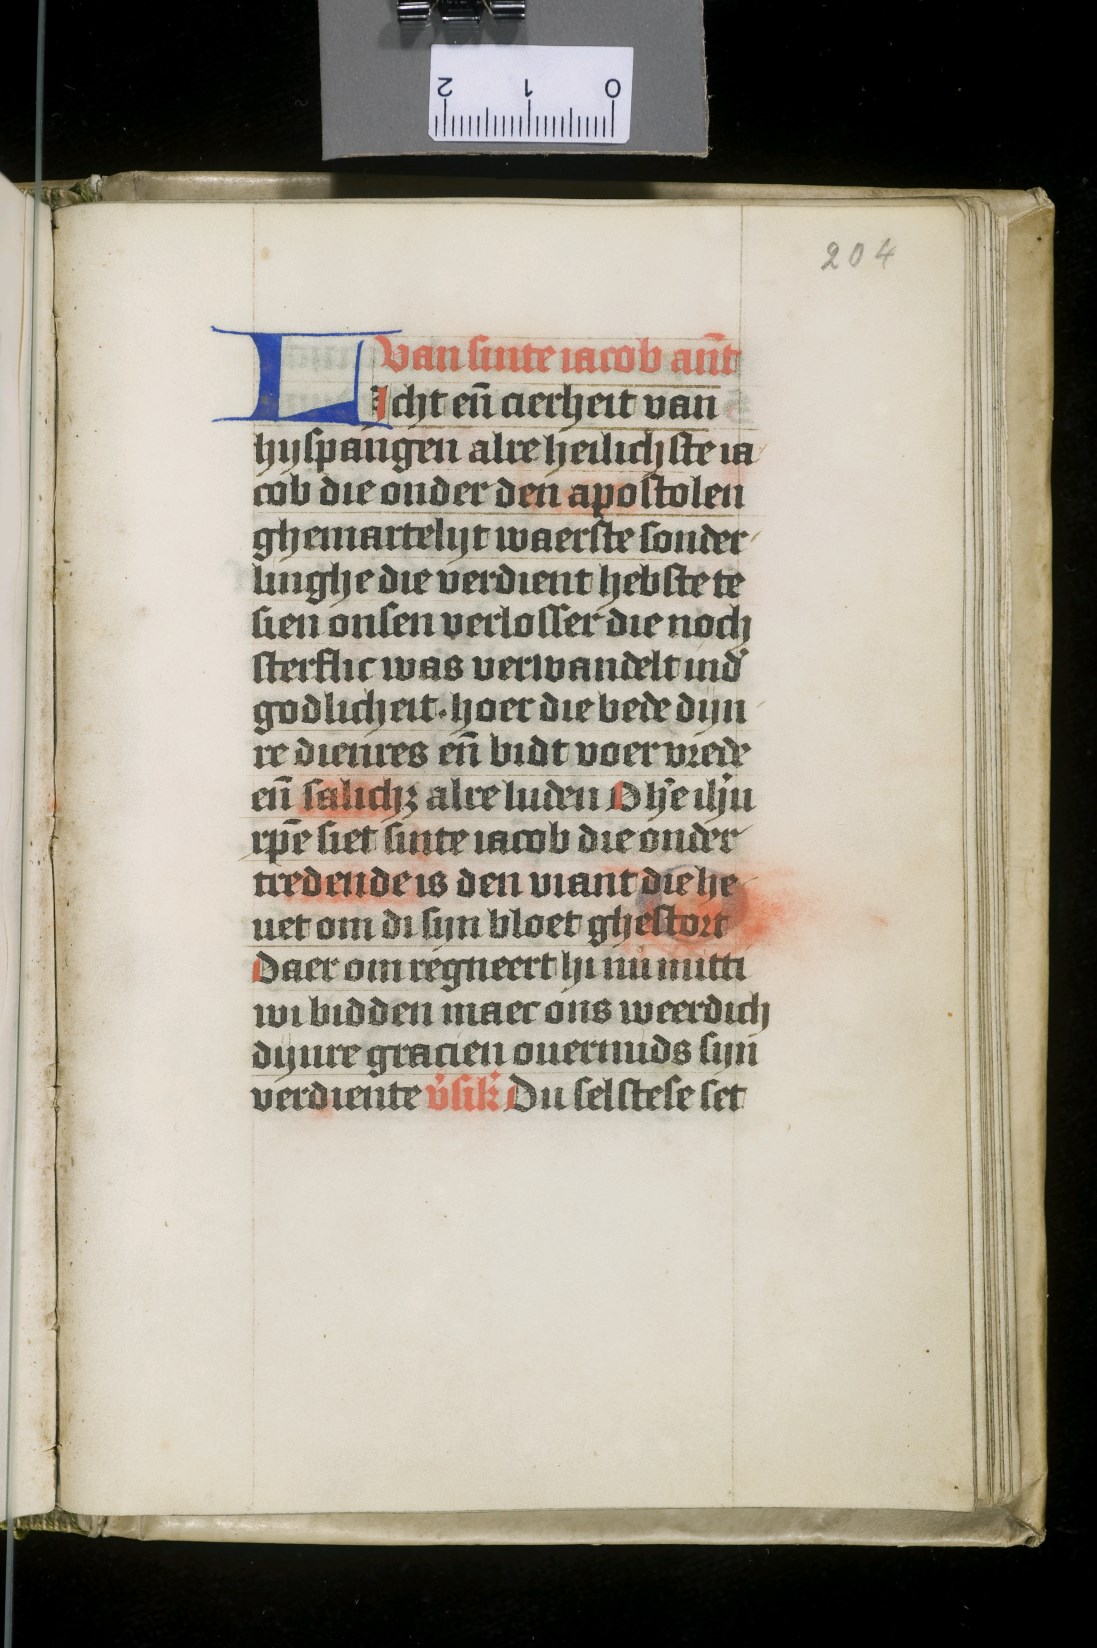 2 1 0
204
Van sinte iacob an̄t
LIcht en̄ cierheit van
hijspangen alre heilichste ia
cob die onder den apostolen
ghemartelijt waerste sonder
linghe die verdient hebste te
sien onsen verlosser die noch
sterflic was verwandelt in d'
godlicheit. hoer die bede dijn
re dienres en̄ bidt voer vrede
en̄ salichꝫ alre luden O h'e ih'u
xp̄e siet sinte iacob die onder
tredende is den viant die he
uet om di sijn bloet ghestort
Daer om regneert hi nu mitti
wi bidden maec ons weerdich
dijnre gracien ouermids sijn
verdiente v'sik' Du selstese set